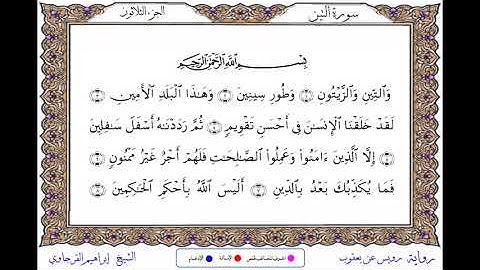 سورة التين
الجزء الثلاثون
بِسْمِ اللَّهِ الرَّحْمَٰنِ الرَّحِيمِ
وَالتِّينِ وَالزَّيْتُونِ ١ وَطُورِ سِينِينَ ٢ وَهَٰذَا الْبَلَدِ الْأَمِينِ ٣
لَقَدْ خَلَقْنَا الْإِنسَٰنَ فِي أَحْسَنِ تَقْوِيمٍ ٤ ثُمَّ رَدَدْنَٰهُ أَسْفَلَ سَٰفِلِينَ
٥ إِلَّا الَّذِينَ ءَامَنُوا وَعَمِلُوا الصَّٰلِحَٰتِ فَلَهُمْ أَجْرٌ غَيْرُ مَمْنُونٍ ٦
فَمَا يُكَذِّبُكَ بَعْدُ بِالدِّينِ ٧ أَلَيْسَ اللَّهُ بِأَحْكَمِ الْحَٰكِمِينَ ٨
رواية رويس عن يعقوب
الإمالة
الإدغام
الشيخ إبراهيم الفرجاوي